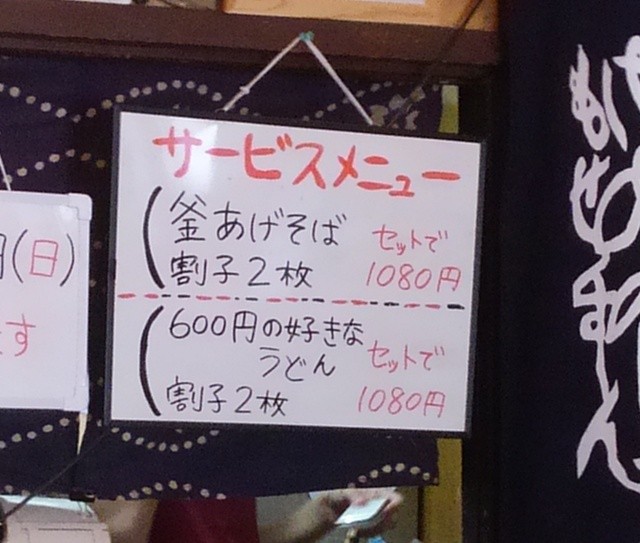 サービスメニュー
釜あげそば
割子2枚
セットで
1080円
600円の好きな
うどん
割子2枚
セットで
1080円
(日)
す